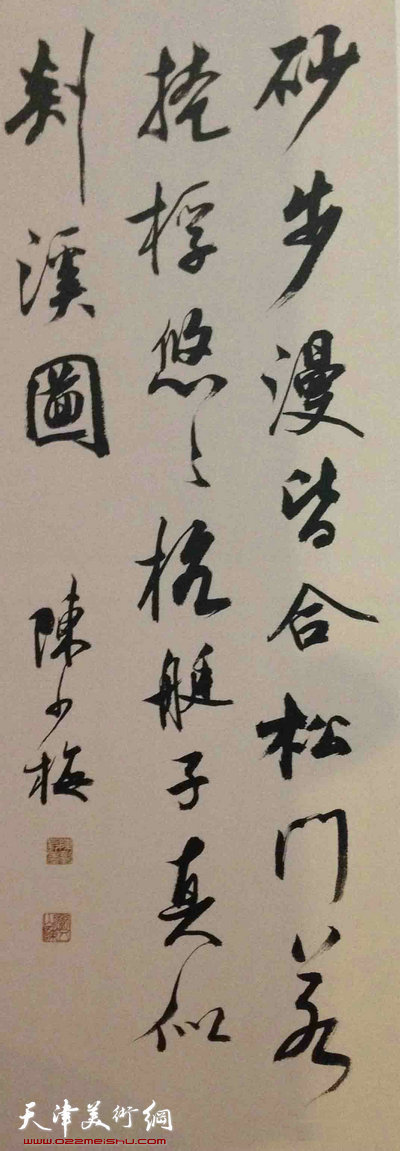 砂步漫皆合松門若
掩桴悠々搖艇子真似
剡溪圖
陳少梅
天津美術網
www.022meishu.com